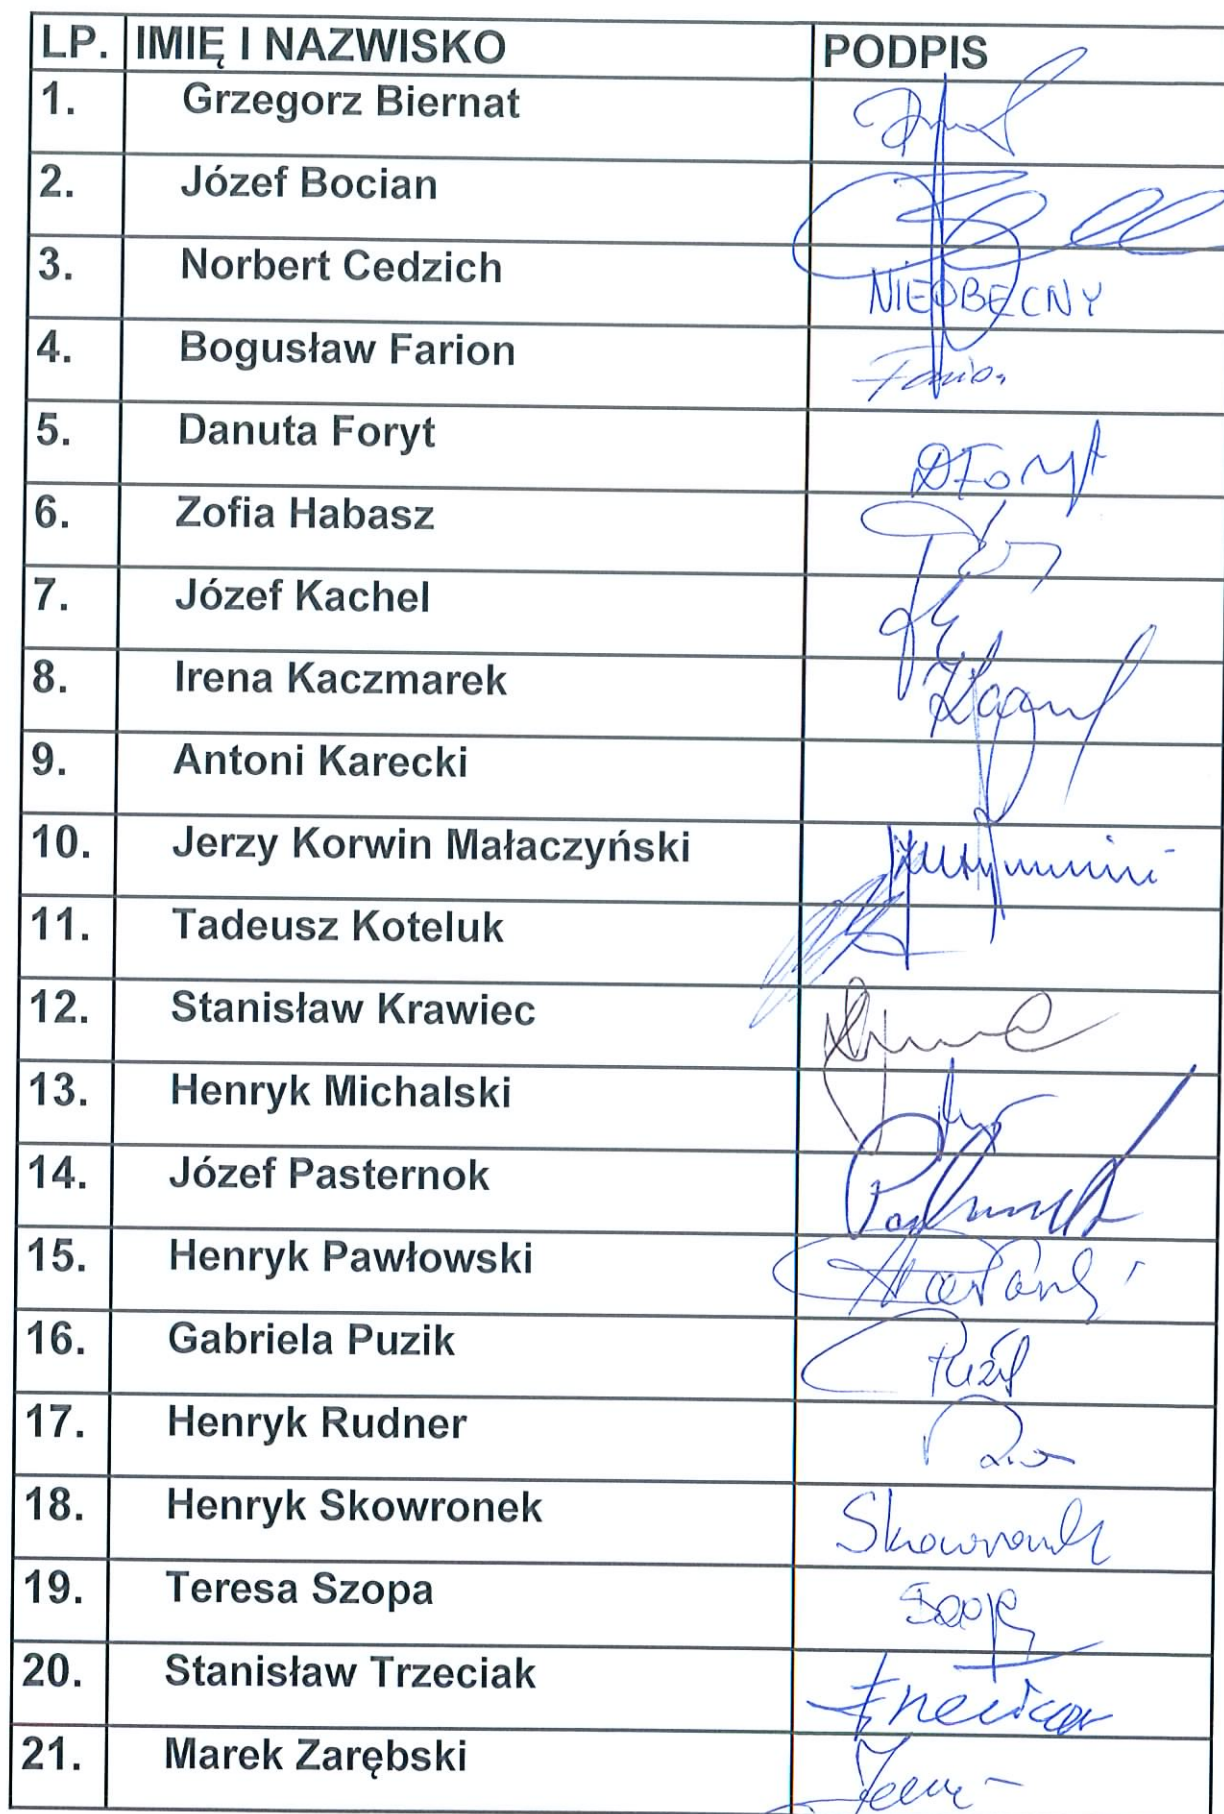 LP. IMIĘ I NAZWISKO PODPIS
1. Grzegorz Biernat
2. Józef Bocian
3. Norbert Cedzich NIEOBECNY
4. Bogusław Farion
5. Danuta Foryt DForyt
6. Zofia Habasz
7. Józef Kachel
8. Irena Kaczmarek
9. Antoni Karecki
10. Jerzy Korwin Małaczyński
11. Tadeusz Koteluk
12. Stanisław Krawiec
13. Henryk Michalski
14. Józef Pasternok
15. Henryk Pawłowski
16. Gabriela Puzik
17. Henryk Rudner
18. Henryk Skowronek Skowronek
19. Teresa Szopa
20. Stanisław Trzeciak
21. Marek Zarębski